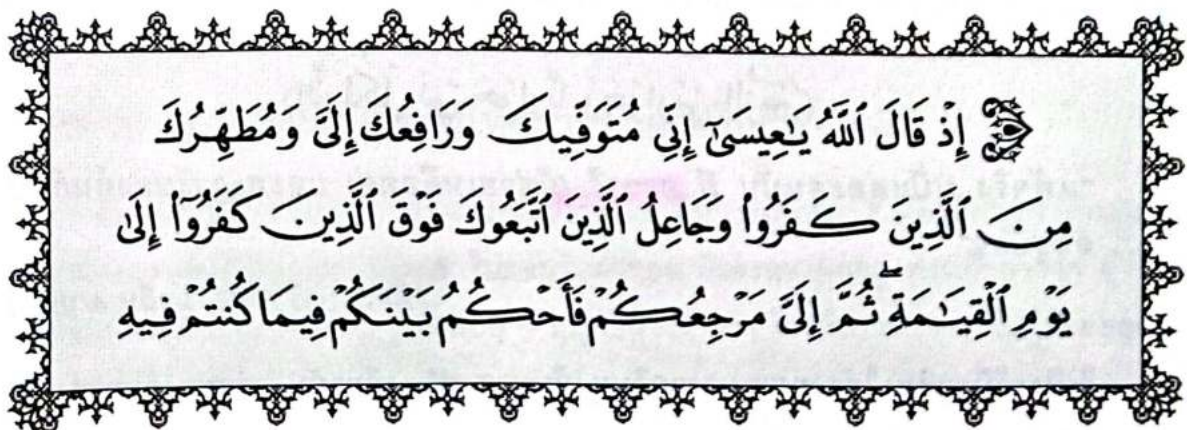 إِذْ قَالَ ٱللَّهُ يَـٰعِيسَىٰٓ إِنِّي مُتَوَفِّيكَ وَرَافِعُكَ إِلَيَّ وَمُطَهِّرُكَ
مِنَ ٱلَّذِينَ كَفَرُوا۟ وَجَاعِلُ ٱلَّذِينَ ٱتَّبَعُوكَ فَوْقَ ٱلَّذِينَ كَفَرُوٓا۟ إِلَىٰ
يَوْمِ ٱلْقِيَـٰمَةِ ۖ ثُمَّ إِلَيَّ مَرْجِعُكُمْ فَأَحْكُمُ بَيْنَكُمْ فِيمَا كُنتُمْ فِيهِ